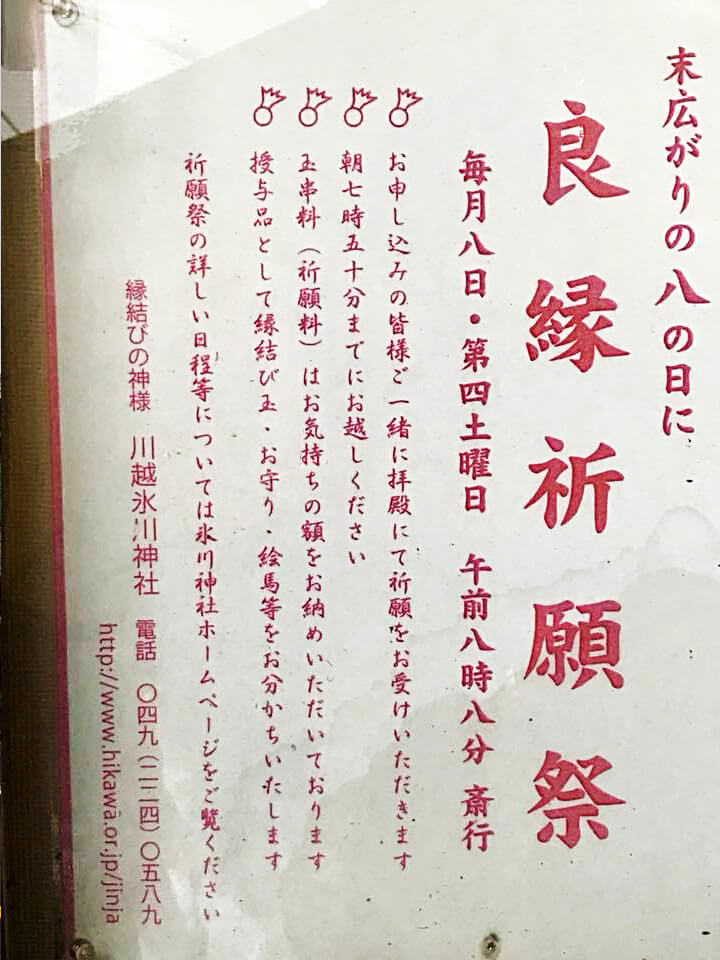 末広がりの八の日に
良縁祈願祭
毎月八日・第四土曜日 午前八時八分 斎行
お申し込みの皆様ご一緒に拝殿にて祈願をお受けいただきます
朝七時五十分までにお越しください
玉串料（祈願料）はお気持ちの額をお納めいただいております
授与品として縁結び玉・お守り・絵馬等をお分かちいたします
祈願祭の詳しい日程等については氷川神社ホームページをご覧ください
縁結びの神様 川越氷川神社 電話 〇四九（二二四）〇五八九
http://www.hikawa.or.jp/jinja